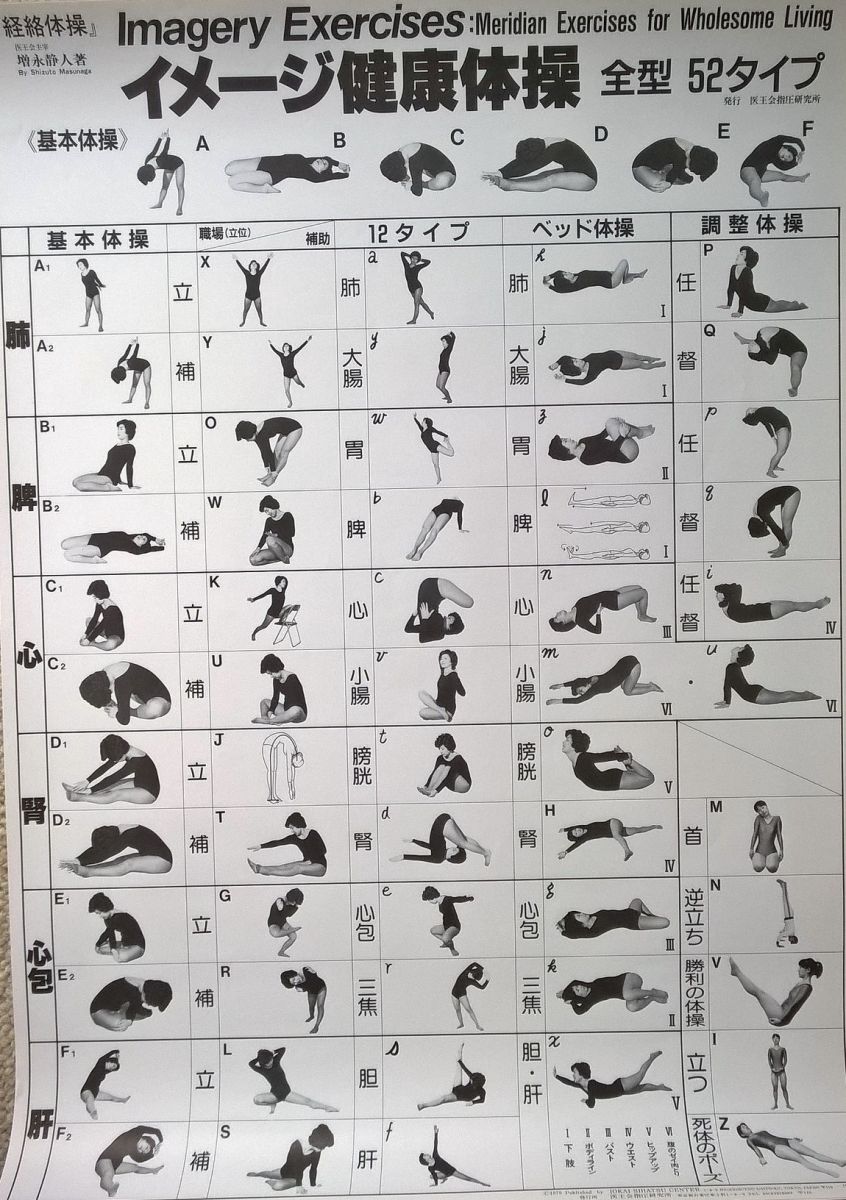 経絡体操』
医王会主宰
増永静人著
By Shizuto Masunaga
Imagery Exercises:Meridian Exercises for Wholesome Living
イメージ健康体操 全型 52タイプ
発行 医王会指圧研究所
《基本体操》 A B C D E F
基本体操 職場(立位) 補助 12タイプ ベッド体操 調整体操
肺 A1 立 X 肺 a 肺 h I 任 P
A2 補 Y 大腸 y 大腸 j I 督 Q
脾 B1 立 O 胃 w 胃 z II 任 p
B2 補 W 脾 b 脾 l I 督 q
心 C1 立 K 心 c 心 n III 任督 i IV
C2 補 U 小腸 v 小腸 m VI ・ u VI
腎 D1 立 J 膀胱 t 膀胱 o V
D2 補 T 腎 d 腎 H IV 首 M
心包 E1 立 G 心包 e 心包 g III 逆立ち N
E2 補 R 三焦 r 三焦 k II 勝利の体操 V
肝 F1 立 L 胆 s 胆・肝 x V 立つ I
F2 補 S 肝 f 死体のポーズ Z
I 下肢
II ボディライン
III バスト
IV ウエスト
V ヒップアップ
©1978 Published by IOKAI SHIATSU CENTER
発行所 医王会指圧研究所